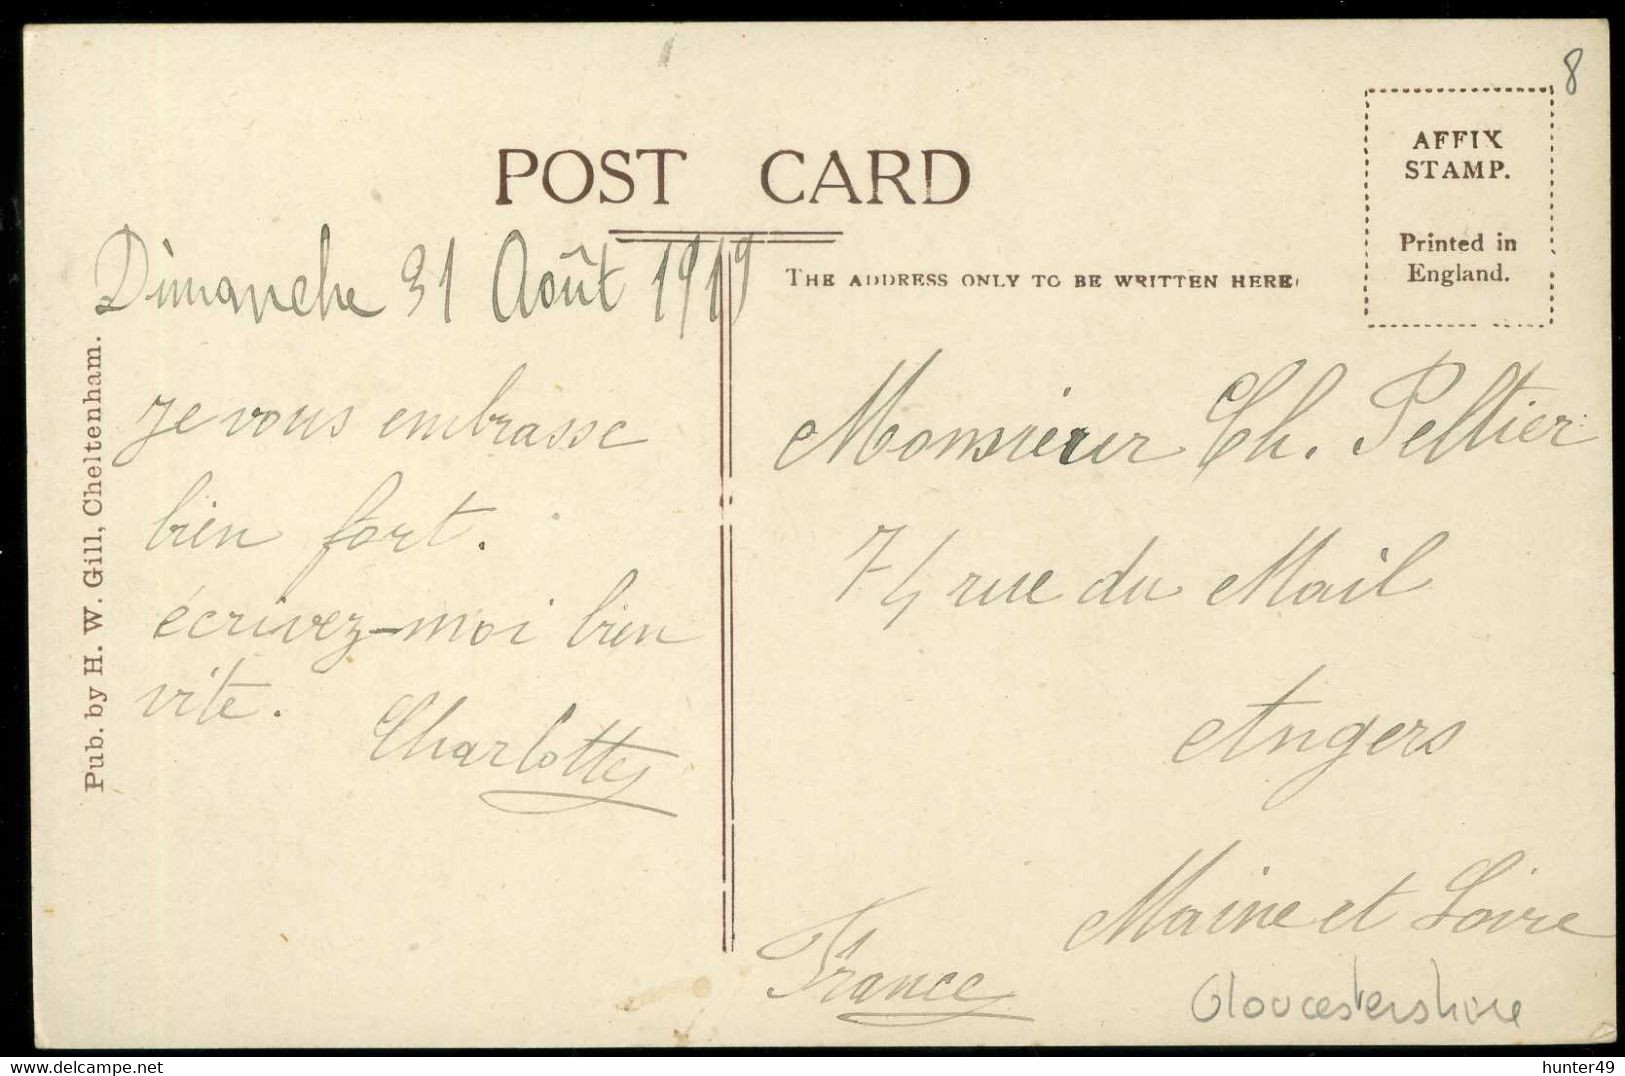 8
AFFIX
STAMP.
Printed in
England.
POST CARD
THE ADDRESS ONLY TO BE WRITTEN HERE
Pub. by H. W. Gill, Cheltenham.
Dimanche 31 Août 1919
Je vous embrasse
bien fort.
écrivez-moi bien
vite.
Charlotte
Monsieur Ch. Peltier
74 rue du Mail
Angers
Maine et Loire
France
Gloucestershire
hunter49